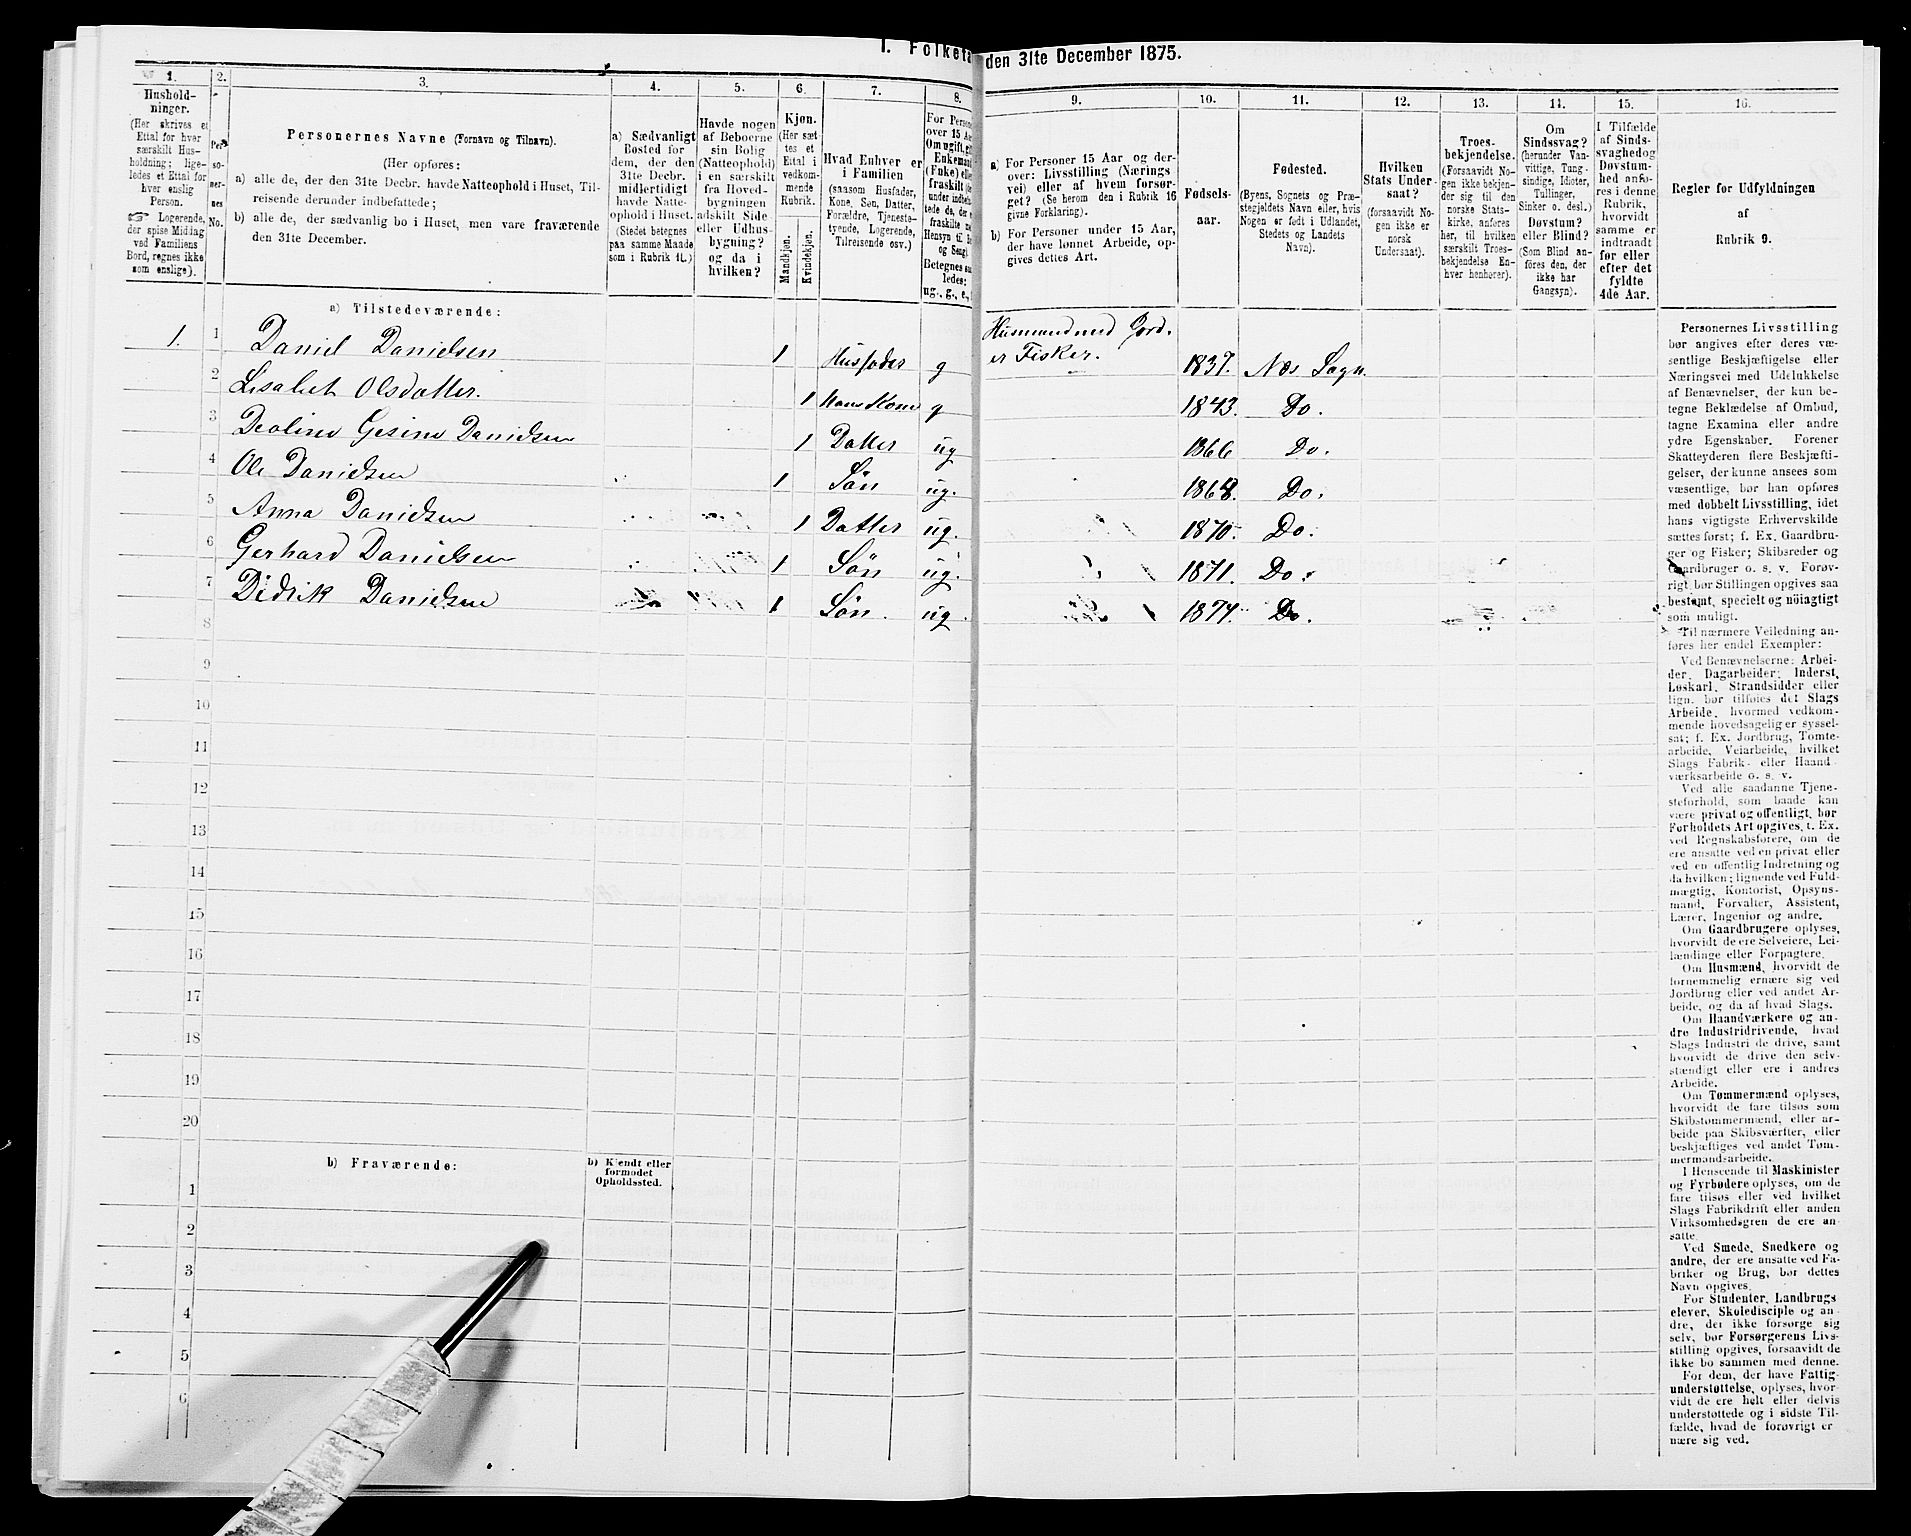 I. Folketæ
den 31te December 1875.
1.
Hushold-
ninger.
(Her skrives et
Ettal for hver
særskilt Hus-
holdning; lige-
ledes et Ettal for
hver enslig
Person.
☞ Logerende,
der spise Middag
ved Familiens
Bord, regnes ikke
som enslige).
2.
Per-
so-
ner-
nes
No.
3.
Personernes Navne (Fornavn og Tilnavn).
(Her opføres:
a) alle de, der den 31te Decbr. havde Natteophold i Huset, Til-
reisende derunder indbefattede;
b) alle de, der sædvanlig bo i Huset, men vare fraværende
den 31te December.
4.
a) Sædvanligt
Bosted for
dem, der den
31te Decbr.
midlertidigt
havde Natte-
ophold i Huset.
(Stedet betegnes
paa samme Maade
som i Rubrik 11.)
5.
Havde nogen
af Beboerne
sin Bolig
(Natteophold)
i en særskilt
fra Hoved-
bygningen
adskilt Side-
eller Udhus-
bygning?
og da i
hvilken?
6.
Kjøn.
(Her sæt-
tes et
Ettal i
vedkom-
mende
Rubrik.
Mandkjøn.
Kvindekjøn.
7.
Hvad Enhver er
i Familien
(saasom Husfader,
Kone, Søn, Datter,
Forældre, Tjeneste-
tyende, Logerende,
Tilreisende osv.)
8.
For Person
over 15 Aar
Om ugift, gif
Enkemand
(Fuke) elle
fraskilt
under indbe
tede de, der
fraskilte
Hensyn til B
og Seng).
Betegnes saa-
ledes:
ug., g., e.,
9.
a) For Personer 15 Aar og der-
over: Livsstilling (Nærings-
vei) eller af hvem forsør-
get? (Se herom den i Rubrik 16
givne Forklaring).
b) For Personer under 15 Aar,
der have lønnet Arbeide, op-
gives dettes Art.
10.
Fødsels-
aar.
11.
Fødested.
(Byens, Sognets og Præ-
stegjeldets Navn eller, hvis
Nogen er født i Udlandet,
Stedets og Landets
Navn).
12.
Hvilken
Stats Under-
saat?
(forsaavidt No-
gen ikke er
norsk
Undersaat).
13.
Troes-
bekjendelse.
(Forsaavidt No-
gen ikke bekjen-
der sig til den
norske Stats-
kirke, anføres
her, til hvilken
særskilt Troes-
bekjendelse En-
hver henhører).
14.
Om
Sindssvag?
(herunder Van-
vittige, Tung-
sindige, Idioter,
Tullinger,
Sinker o. desl.)
Døvstum?
eller Blind?
(Som Blind an-
føres den, der
ikke har
Gangsyn).
15.
I Tilfælde
af Sinds-
svaghed og
Døvstum-
hed anfø-
res i denne
Rubrik,
hvorvidt
samme er
indtraadt
før eller
efter det
fyldte
4de Aar.
16.
Regler for Udfyldningen
af
Rubrik 9.
a) Tilstedeværende:
1. 1 Daniel Danielsen 1 Husfader g Husmand med Jord. er Fisker. 1837. Næs Sogn.
2 Lisabet Olsdatter. 1 Hans Kone g 1843. Do.
3 Deoline Gesine Danielsen 1 Datter ug 1866 Do.
4 Ole Danielsen 1 Søn ug. 1868. Do.
5 Anna Danielsen 1 Datter ug. 1870. Do.
6 Gerhard Danielsen 1 Søn ug. 1871. Do.
7 Didrik Danielsen 1 Søn. ug. 1874. Do.
8
9
10
11
12
13
14
15
16
17
18
19
20
b) Fraværende:
b) Kjendt eller
formodet
Opholdssted.
1
2
3
4
5
6
Personernes Livsstilling
bør angives efter deres væ-
sentlige Beskjæftigelse eller
Næringsvei med Udelukkelse
af Benævnelser, der kun be-
tegne Beklædelse af Ombud,
tagne Examina eller andre
ydre Egenskaber. Forener
Skatteyderen flere Beskjæfti-
gelser, der kunne ansees som
væsentlige, bør han opføres
med dobbelt Livsstilling, idet
hans vigtigste Erhvervskilde
sættes først; f. Ex. Gaardbru-
ger og Fisker; Skibsreder og
Gaardbruger o. s. v. Forøv-
rigt bør Stillingen opgives saa
bestemt, specielt og nöiagtigt
som muligt.
Til nærmere Veiledning an-
føres her endel Exempler:
Ved Benævnelserne: Arbei-
der, Dagarbeider, Inderst,
Løskarl, Strandsidder eller
lign. bør tilføies det Slags
Arbeide, hvormed vedkom-
mende hovedsagelig er syssel-
sat; f. Ex. Jordbrug, Tomte-
arbeide, Veiarbeide, hvilket
Slags Fabrik- eller Haand-
værksarbeide o. s. v.
Ved alle saadanne Tjene-
steforhold, som baade kan
være privat og offentligt, bør
Forholdets Art opgives, t. Ex.
ved Regnskabsførere, om de
ere ansatte ved en privat eller
ved en offentlig Indretning og
da hvilken; lignende ved Fuld-
mægtig, Kontorist, Opsyns-
mand, Forvalter, Assistent,
Lærer, Ingeniør og andre.
Om Gaardbrugere oplyses,
hvorvidt de ere Selveiere, Lei-
lændinge eller Forpagtere.
Om Husmænd, hvorvidt de
fornemmelig ernære sig ved
Jordbrug eller ved andet Ar-
beide, og da af hvad Slags.
Om Haandværkere og an-
dre Industridrivende, hvad
Slags Industri de drive, samt
hvorvidt de drive den selv-
stændigt eller ere i andres
Arbeide.
Om Tømmermænd oplyses,
hvorvidt de fare tilsøs som
Skibstømmermænd, eller ar-
beide paa Skibsværfter, eller
beskjæftiges ved andet Tøm-
mermandsarbeide.
I Henseende til Maskinister
og Fyrbødere oplyses, om de
fare tilsøs eller ved hvilket
Slags Fabrikdrift eller anden
Virksomhedsgren de ere an-
satte.
Ved Smede, Snedkere og
andre, der ere ansatte ved Fa-
briker og Brug, bør dettes
Navn opgives.
For Studenter, Landbrugs-
elever, Skoledisciple og an-
dre, der ikke forsørge sig
selv, bør Forsørgerens Livs-
stilling opgives, forsaavidt de
ikke bo sammen med denne.
For dem, der have Fattig-
understøttelse, oplyses, hvor-
vidt de ere helt eller delvis
understøttede og i sidste Til-
fælde, hvad de forøvrigt er-
nære sig ved.